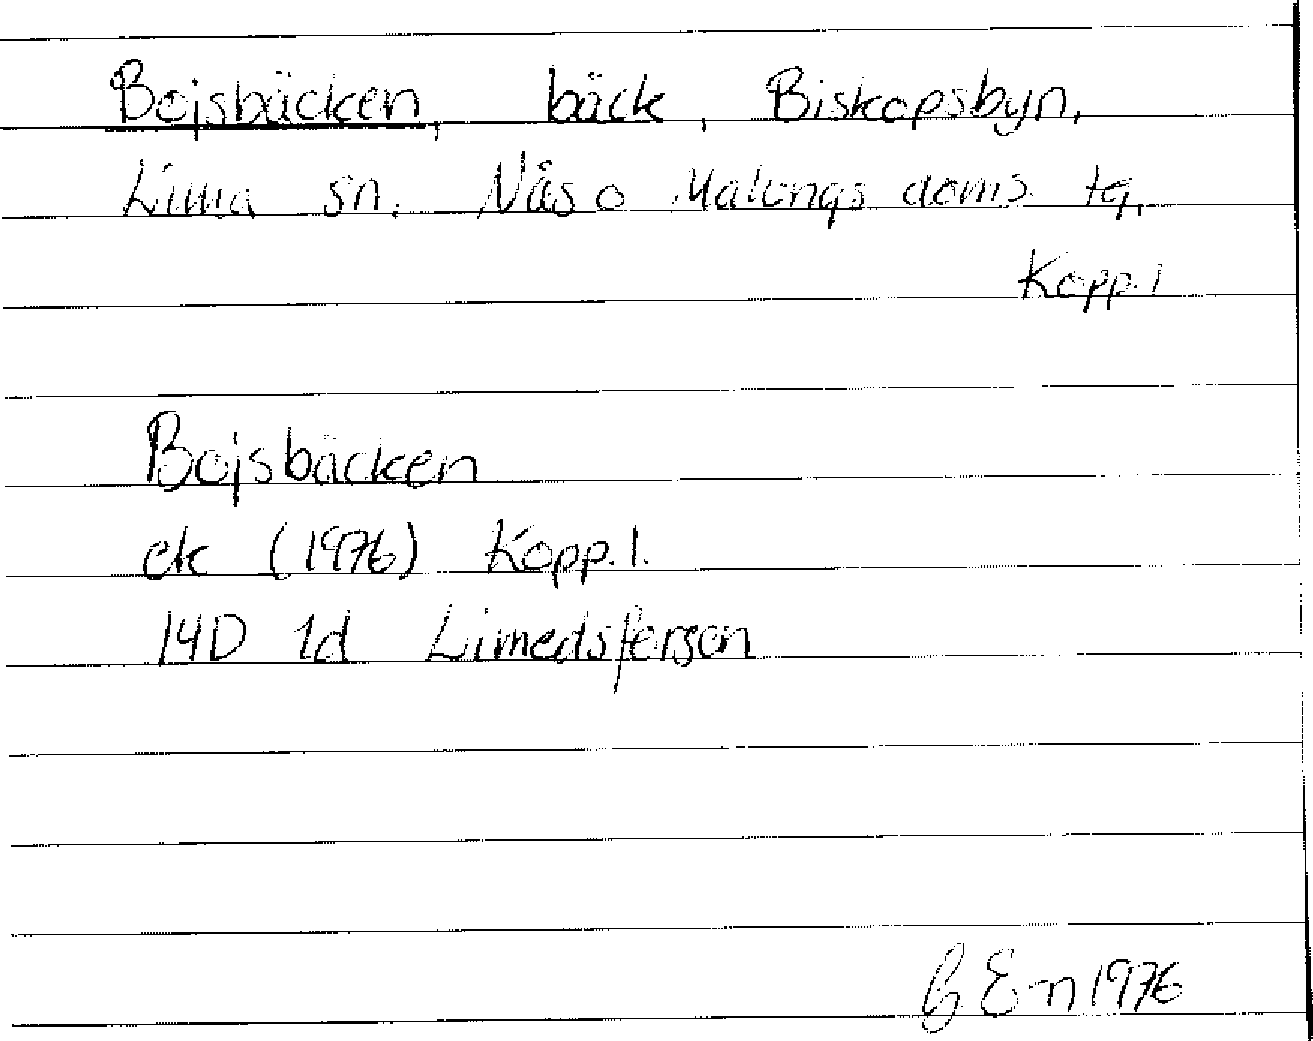 Bojsbäcken, bäck, Biskopsbyn,
Lima sn. Nås o Malungs doms. tg,
Kopp. l
Bojsbäcken
ek (1976) Kopp. l.
14D 1d Limedsforsen
G En 1976